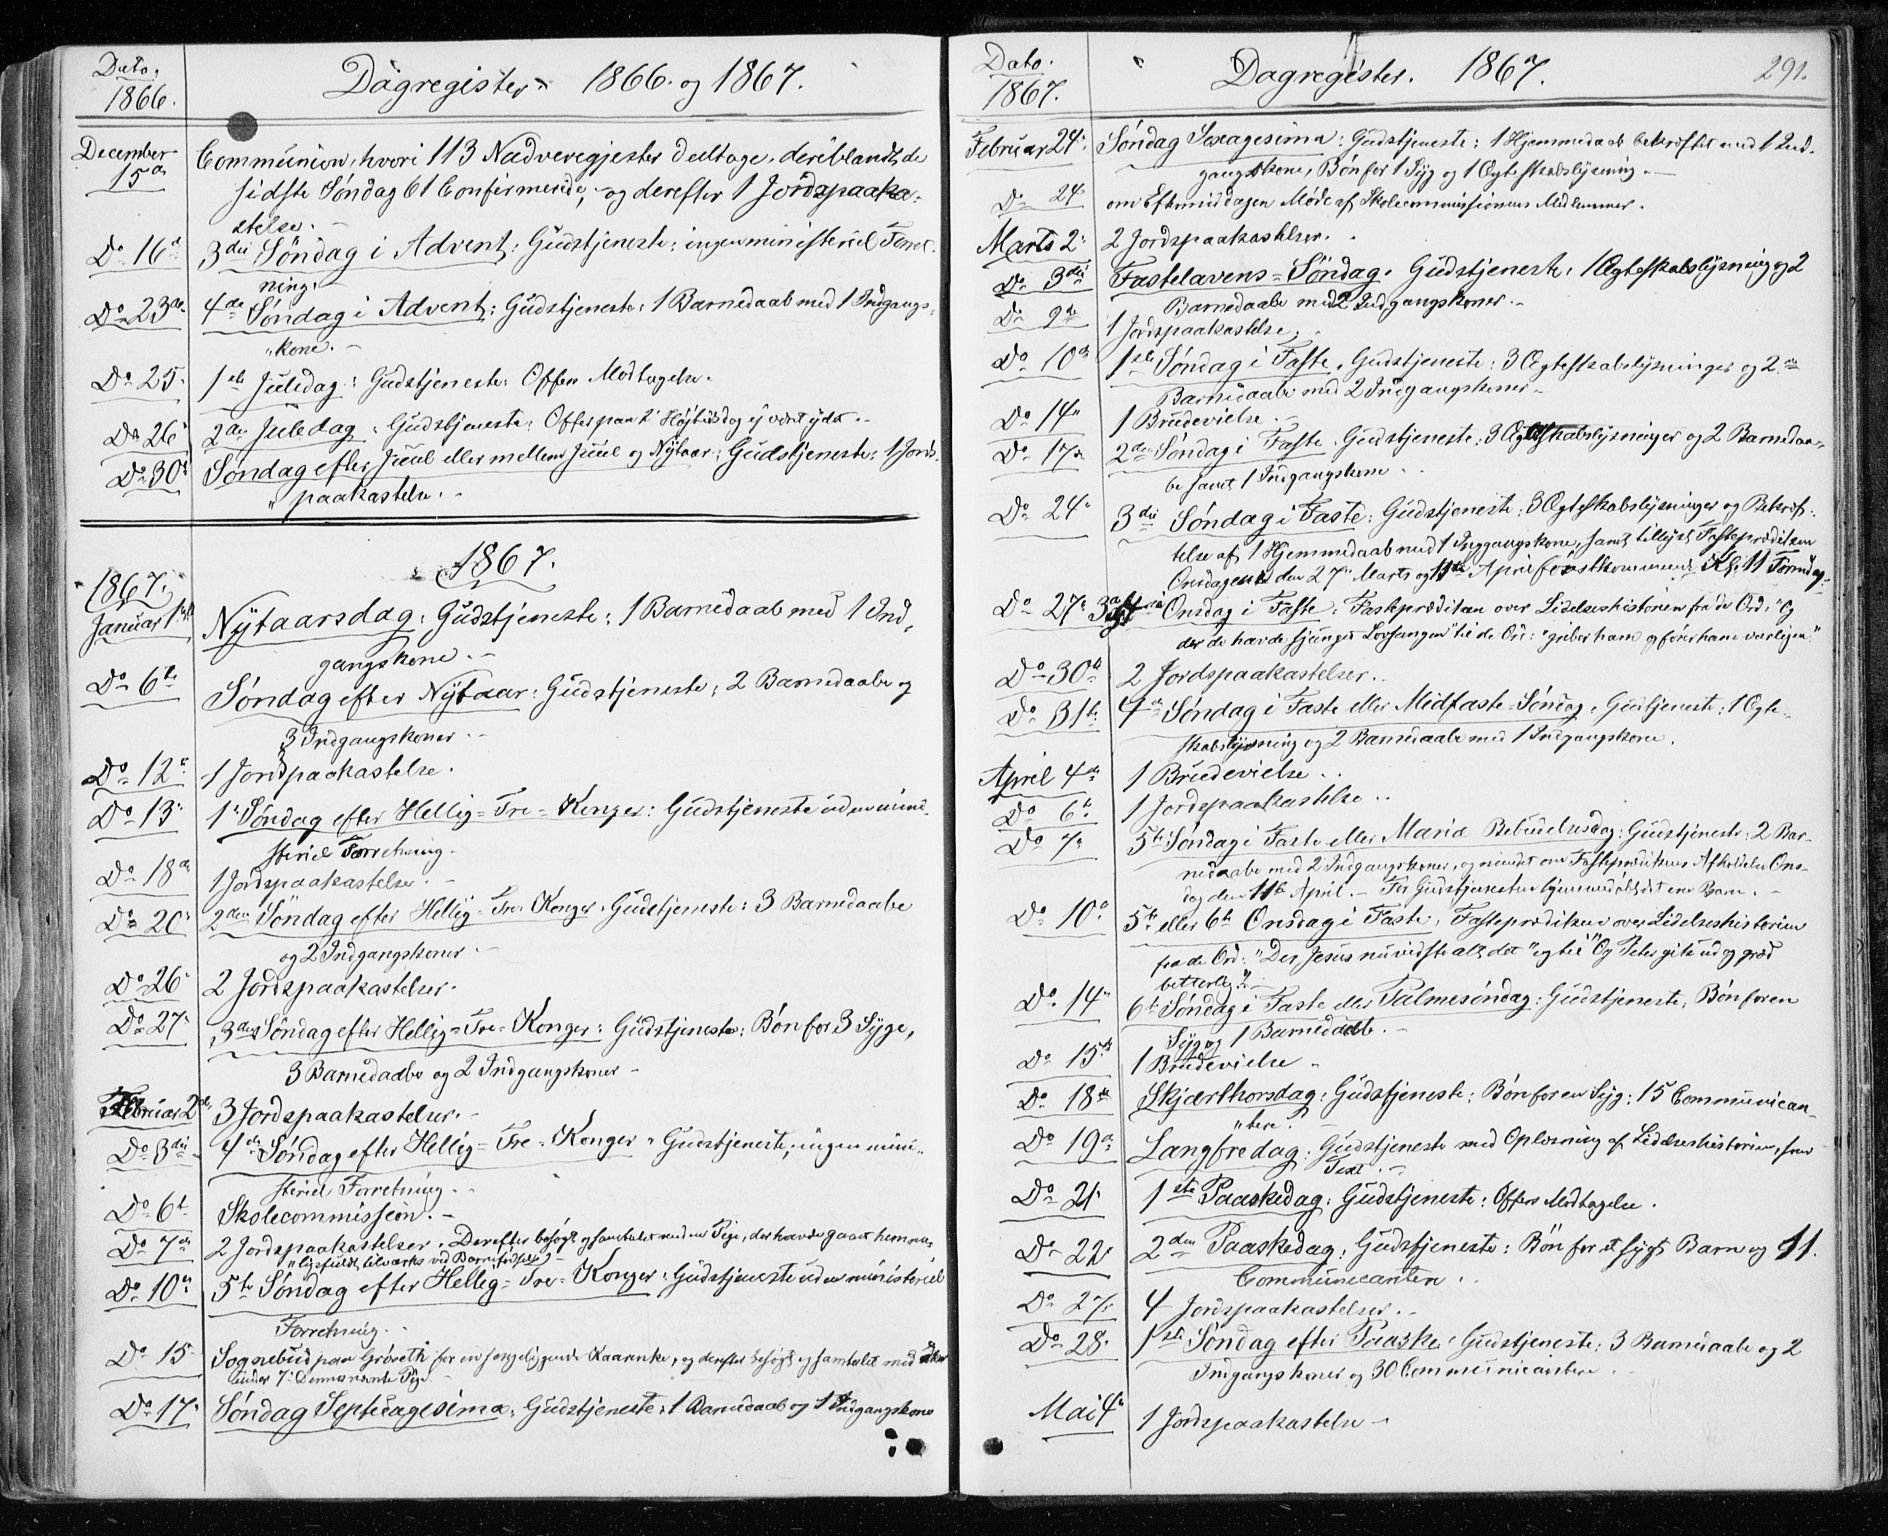 Dato.
1866.
Dagregister 1866. og 1867.
December 15de
Communion, hvori 113 Nadveregjester deeltoge, deriblandt, de
sidste Søndag 61 Confirmerede, og derefter 1 Jordspaaka-
stelse.
Do 16de 3die Søndag i Advent: Gudstjeneste: ingen ministeriel Forret-
ning.
Do 23de 4de Søndag i Advent: Gudstjeneste: 1 Barnedaab med 1 Indgangs-
kone.
Do 25. 1ste Juledag: Gudstjeneste: Offers Modtagelse.
Do 26. 2den Juledag: Gudstjeneste:
Do 30. Søndag efter Juul eller mellem Juul og Nytaar: Gudstjeneste: 1 Jords-
paakastelse.
1867.
1867.
Januar 1ste Nytaarsdag: Gudstjeneste: 1 Barnedaab med 1 Ind-
gangskone.
Do 6te Søndag efter Nytaar: Gudstjeneste: 2 Barnedaabe og
3 Indgangskoner.
Do 12te 1 Jordspaakastelse.
Do 13. 1. Søndag efter Hellig-Tre-Konger: Gudstjeneste uden mini-
steriel Forretning.
Do 18de 1 Jordspaakastelse.
Do 20. 2den Søndag efter Hellig-Tre-Konger: Gudstjeneste: 3 Barnedaabe
og 2 Indgangskoner
Do 26. 2 Jordspaakastelser.
Do 27. 3die Søndag efter Hellig-Tre-Konger: Gudstjeneste: Bøn for 3 Syge,
3 Barnedaabe og 2 Indgangskoner
Februar 2den 3 Jordspaakastelser.
Do 3die 4de Søndag efter Hellig-Tre-Konger: Gudstjeneste; ingen mini-
steriel Forretning.
Do 6te Skolecommission.
Do 7de 2 Jordspaakastelser. Derefter besøgt og samtalet med en Pige, der havde gaaet hemme-
ved Barnefødsel
Do 10de 5te Søndag efter Hellig-Tre-Konger: Gudstjeneste uden ministeriel
Forretning.
Do 15. Sognebud paa for en sengeliggende og derefter besøgt og samtalet med
under 7. Pige.
Do 17. Søndag Septuagesima: Gudstjeneste: 1 Barnedaab og 1 Indgangskone
Dato.
1867.
Dagregister. 1867.
291.
Februar 24. Søndag Sexagesima: Gudstjeneste: 1 Hjemmedaab bekræftet med 1 Ind-
gangskone, Bøn for 1 Syg og 1 Ægteskabslysning.
Do 24 om Eftermiddagen Møde af Skolecommissionens Medlemmer.
Marts 2. 2 Jordspaakastelser.
Do 3die Fastelavens-Søndag. Gudstjeneste, 1 Ægteskabslysning og 2
Barnedaabe med 2 Indgangskoner.
Do 9de 1 Jordspaakastelse.
Do 10de 1ste Søndag i Faste, Gudstjeneste: 3 Ægteskabslysninger og 2
Barnedaabe med 2 Indgangskoner
Do 14. 1 Brudevielse.
Do 17. 2den Søndag i Faste. Gudstjeneste: 3 Ægteskabslysninger og 2 Barnedaa-
be samt 1 Indgangskone.
Do 24. 3die Søndag i Faste: Gudstjeneste: 3 Ægteskabslysninger og Bekræf-
telse af 1 Hjemmedaab med 1 Inggangskone, samt tillyst Fasteprædiken
Onsdagene den 27. Marts og 11te April førstkommende Kl. 11 Formidag.
Do 27. Onsdag i Faste: Fasteprædiken over Lidelseshistorien fra de Ord: "Og
der de havde sjunget Lovsangen" til de Ord: "griber ham og fører ham varligen".
Do 30te 2 Jordspaakastelser.
Do 31te 4de Søndag i Faste eller Midfaste-Søndag, Gudstjeneste: 1 Ægte-
skabslysning og 2 Barnedaabe med 1 Indgangskone.
April 4de 1 Brudevielse.
Do 6te 1 Jordspaakastelse.
Do 7. 5te Søndag i Faste eller Mariæ Bebudelsesdag: Gudstjeneste: 2 Bar-
nedaabe med 2 Indgangskoner, og mindet om Fasteprædikens Afholdelse Ons-
dag den 11te April. — Før Gudstjenesten hjemmedøbt et Barn.
Do 10. 5te eller 6te Onsdag i Faste, Fasteprædiken over Lidelseshistorien
fra de Ord: "Der Jesus nu vidste alt det" og til "Og Peter gik ud og græd
bitterlig".
Do 14. 6te Søndag i Faste eller Palmesøndag: Gudstjeneste, Bøn for en
Syg og 1 Barnedaab.
Do 15de 1 Brudevielse
Do 18de Skjærthorsdag: Gudstjeneste: Bøn for en Syg: 15 Communican-
tere.
Do 19de Langfredag: Gudstjeneste med Oplæsning af Lidelseshistorien, som
Text.
Do 21. 1ste Paaskedag: Gudstjeneste: Offers Modtagelse.
Do 22. 2den Paaskedag: Gudstjeneste: Bøn for et sygt Barn og 11.
Communicanter.
Do 27. 4 Jordspaakastelser.
Do 28. 1ste Søndag efter Paaske: Gudstjeneste: 3 Barnedaabe og 2
Indgangskoner og 30 Communicantere.
Mai 4. 1 Jordspaakastelse